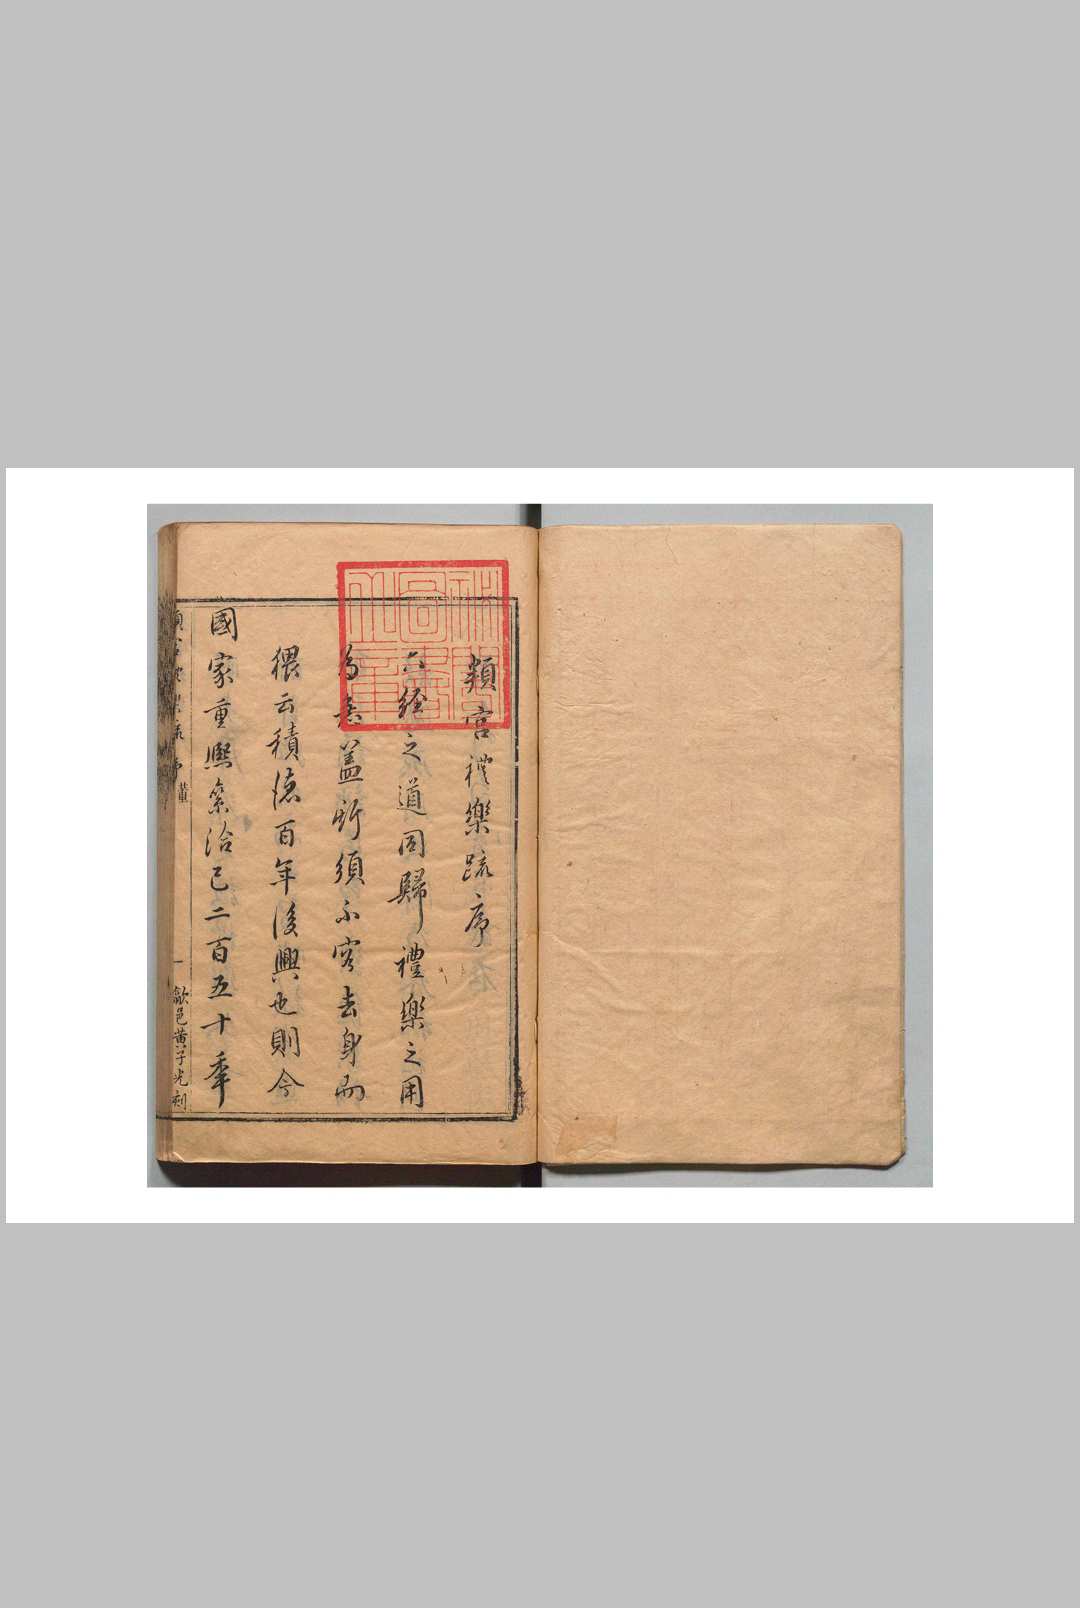 頖宮禮樂疏序
六經之道同歸禮樂之用
為急蓋斯須不容去身而
猥云積德百年後興也則今
國家重熙絫洽已二百五十年
頖宮禮樂疏序
董
一
歙邑黃子光刻